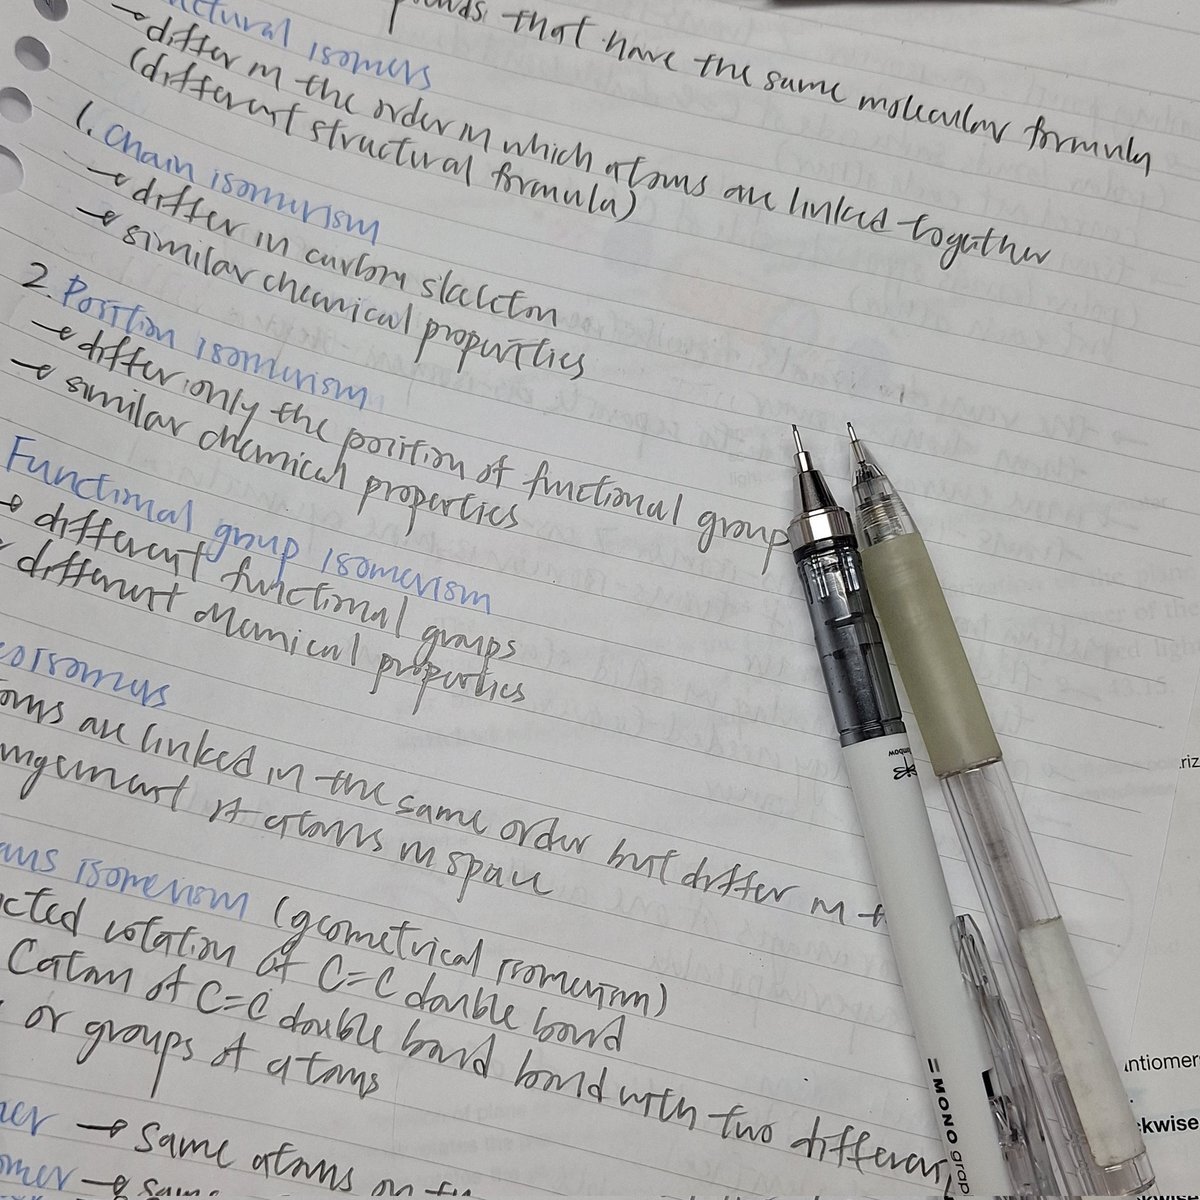 that have the same molecular formula
isomers
→ differ in the order in which atoms are linked together
(different structural formula)
1. Chain isomerism
→ differ in carbon skeleton
→ similar chemical properties
2. Position isomerism
→ differ only the position of functional group
→ similar chemical properties
Functional group isomerism
→ different functional groups
different chemical properties
are linked in the same order but differ in
of atoms in space
isomerism (geometrical isomerism)
rotation of C=C double bond
C atom of C=C double bond bond with two different
or groups of atoms
→ same atoms on
MONO grap